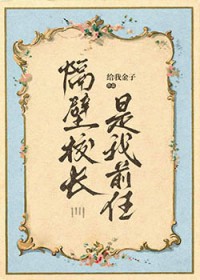 给我金子
隔壁校长
是我前任